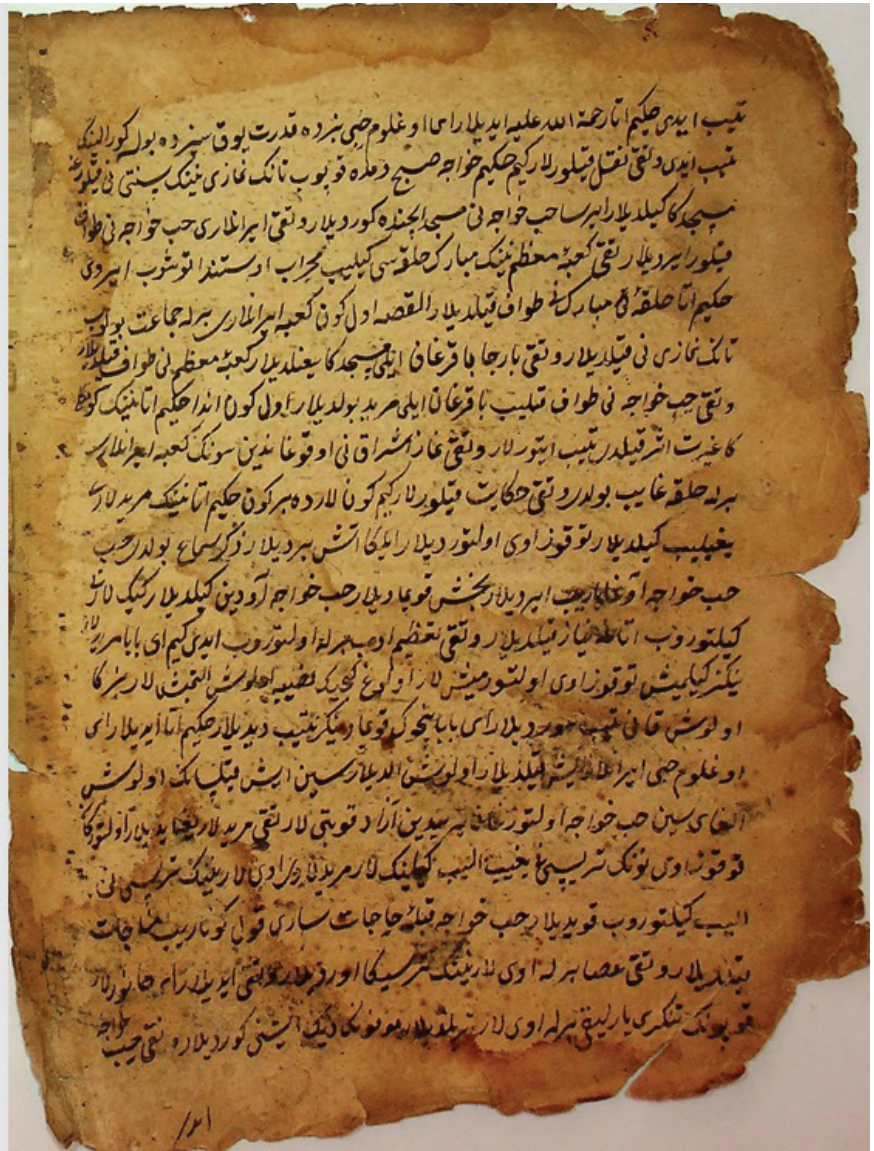 تیب ایدی حکیم اتا رحمة الله علیه ایدیلار ای اوغلوم حبی بزده قدرت یوق سیزده بولسه کورالینک
تیب ایدی و تقی نقل قیلورلار کیم حکیم خواجه صبح دمده قوپوب تانک نمازی نینک سنتی نی قیلور
مسجدکا کیلدیلار ایرسا حب خواجه نی مسجد ایچنده کوردیلار و تقی ایرانلاری حب خواجه نی طواف
قیلور ایردیلار تقی کعبهٔ معظم نینک مبارک حلقه سی کیلیب محراب اوستندا توشوب ایردی
حکیم اتا حلقهٔ مبارک نی طواف قیلدیلار القصه اول کون کعبه ایرانلاری برله جماعت بولوب
تانک نمازی نی قیلدیلار و تقی بارچا باقرغان ایلی مسجدکا یغلدیلار کعبهٔ معظم نی طواف قیلدیلار
و تقی حب خواجه نی طواف قیلیب باقرغان ایلی مرید بولدیلار اول کون اندا حکیم اتا نینک کونکلی
کا غیرت اثر قیلدی تیب ایتورلار و تقی نماز اشراق نی اوقوغاندین سونک کعبه ایرانلاری
برله حلقه غایب بولدی و تقی حکایت قیلورلار کیم کونلارده بر کون حکیم اتا نینک مریدلاری
یغیلیب کیلدیلار توقوز اوی اولتوردیلار ایلکا اش بردیلار ذکر سماع بولدی حب
حب خواجه آوغا باریب ایردیلار بخش قویمادیلار حب خواجه آودین کیلدیلار کییک لار
کیلتوروب اتاغه نیاز قیلدیلار و تقی تعظیم ادب برله اولتوروب ایدی کیم ای بابا مریدلار
نیکز کیلمیش توقوز اوی اولتورمیش لار اولوغ کجیک اولوش القیش لار بزکا
اولوش قانی تیب سوردیلار ای بابا نجوک قویمادینکز تیب دیدیلار حکیم اتا ایدیلار ای
اوغلوم حبی ایرانلار ایش قیلدیلار اولوش الدیلار سین ایش قیلسانک اولوش
الغای سین حب خواجه اولتورغان یریدین آزاد قوپتی لار تقی مریدلار اولتورکان
توقوز اوی نونک تریسی یغیب الیب کیلینک لار مریدلار اوی لارنینک تریسی نی
الیب کیلتوروب قویدیلار حب خواجه قبلهٔ حاجات ساری قول کوتاریب مناجات
قیلدیلار و تقی عصا برله اوی لارنینک تریسیکا اوردیلار و تقی ایدیلار ای جانورلار
قوپونک تنکری یارلیقی برله اوی لار تریلدیلار مونونک دیک ایشنی کوردیلار و تقی حبیب خواجه